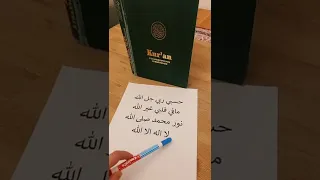 Kur'an
حسبي ربي جل الله
مافي قلبي غير الله
نور محمد صلى الله
لا اله الا الله